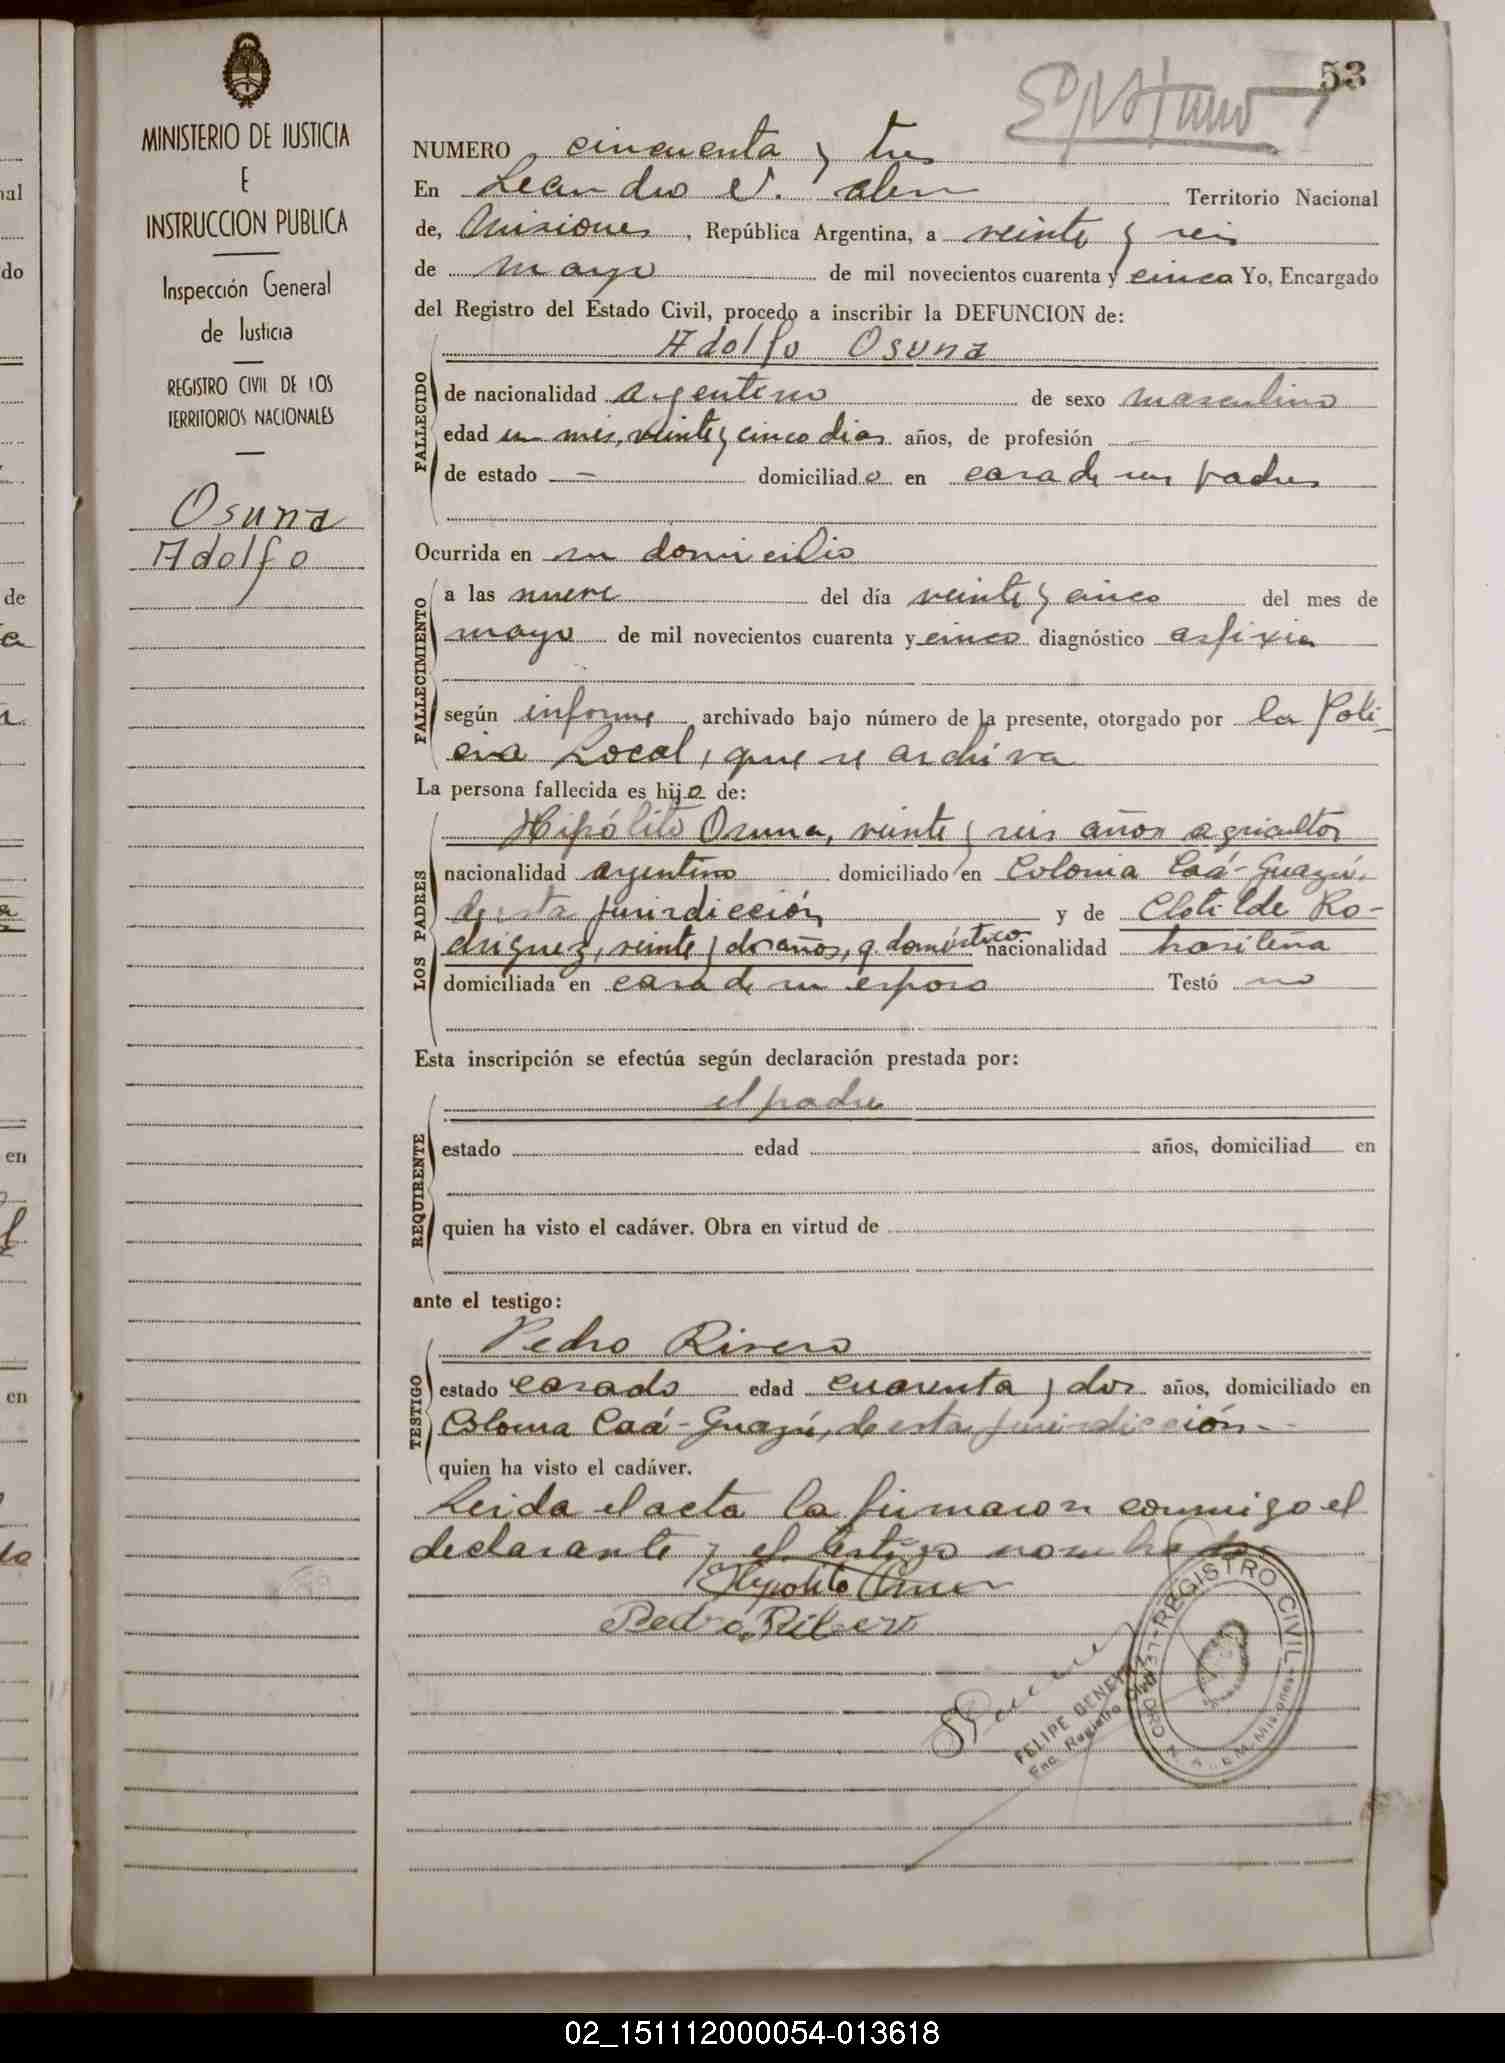 53
MINISTERIO DE JUSTICIA
E
INSTRUCCION PUBLICA
Inspección General
de Justicia
REGISTRO CIVIL DE LOS
TERRITORIOS NACIONALES
Osuna
Adolfo
NUMERO cincuenta y tres
En Leandro N. Alem Territorio Nacional
de, Misiones, República Argentina, a veinte y seis
de mayo de mil novecientos cuarenta y cinco Yo, Encargado
del Registro del Estado Civil, procedo a inscribir la DEFUNCION de:
Adolfo Osuna
FALLECIDO
de nacionalidad argentino de sexo masculino
edad un mes, veinte y cinco dias años, de profesión —
de estado — domiciliado en casa de sus padres
Ocurrida en su domicilio
FALLECIMIENTO
a las nueve del día veinte y cinco del mes de
mayo de mil novecientos cuarenta y cinco diagnóstico asfixia
según informe archivado bajo número de la presente, otorgado por la Poli-
cia Local, que se archiva
La persona fallecida es hijo de:
LOS PADRES
Hipólito Osuna, veinte y seis años agricultor
nacionalidad argentino domiciliado en Colonia Caá-Guazú,
de esta jurisdicción y de Clotilde Ro-
driguez, veinte y dos años, q. doméstico nacionalidad brasileña
domiciliada en casa de su esposo Testó no
Esta inscripción se efectúa según declaración prestada por:
REQUIRENTE
el padre
estado edad años, domiciliad en
quien ha visto el cadáver. Obra en virtud de
ante el testigo:
TESTIGO
Pedro Rivero
estado casado edad cuarenta y dos años, domiciliado en
Colonia Caá-Guazú, de esta jurisdicción
quien ha visto el cadáver.
Leida el acta la firmaron conmigo el
declarante y el testigo nombrado.
Hipolito Osuna
Pedro Ribero
FELIPE
Enc. Registro Civil
REGISTRO CIVIL
Misiones
02_151112000054-013618